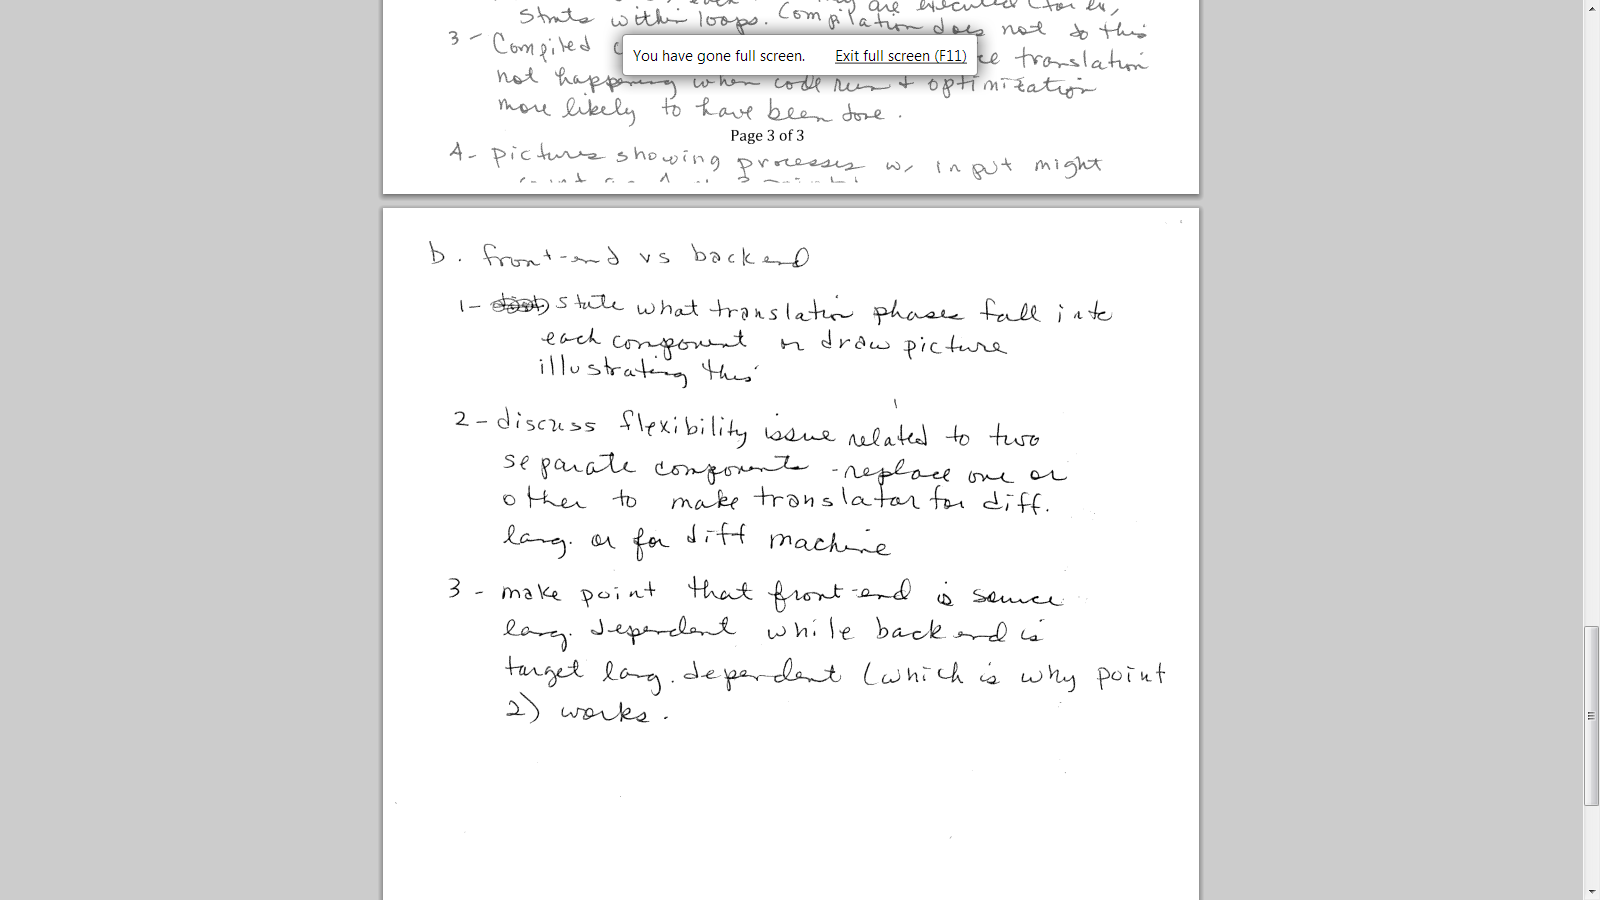 are executed (for ex,
stmts within loops. Compilation does not do this
3 - Compiled
You have gone full screen. Exit full screen (F11)
translation
not happening when code run + optimization
more likely to have been done.
Page 3 of 3
4- pictures showing processes w/ input might
b. front-end vs backend
1- state what translation phases fall into
each component or draw picture
illustrating this
2 - discuss flexibility issue related to two
separate components - replace one or
other to make translator for diff.
lang. or for diff machine
3 - make point that front-end is source
lang. dependent while backend is
target lang. dependent (which is why point
2) works.